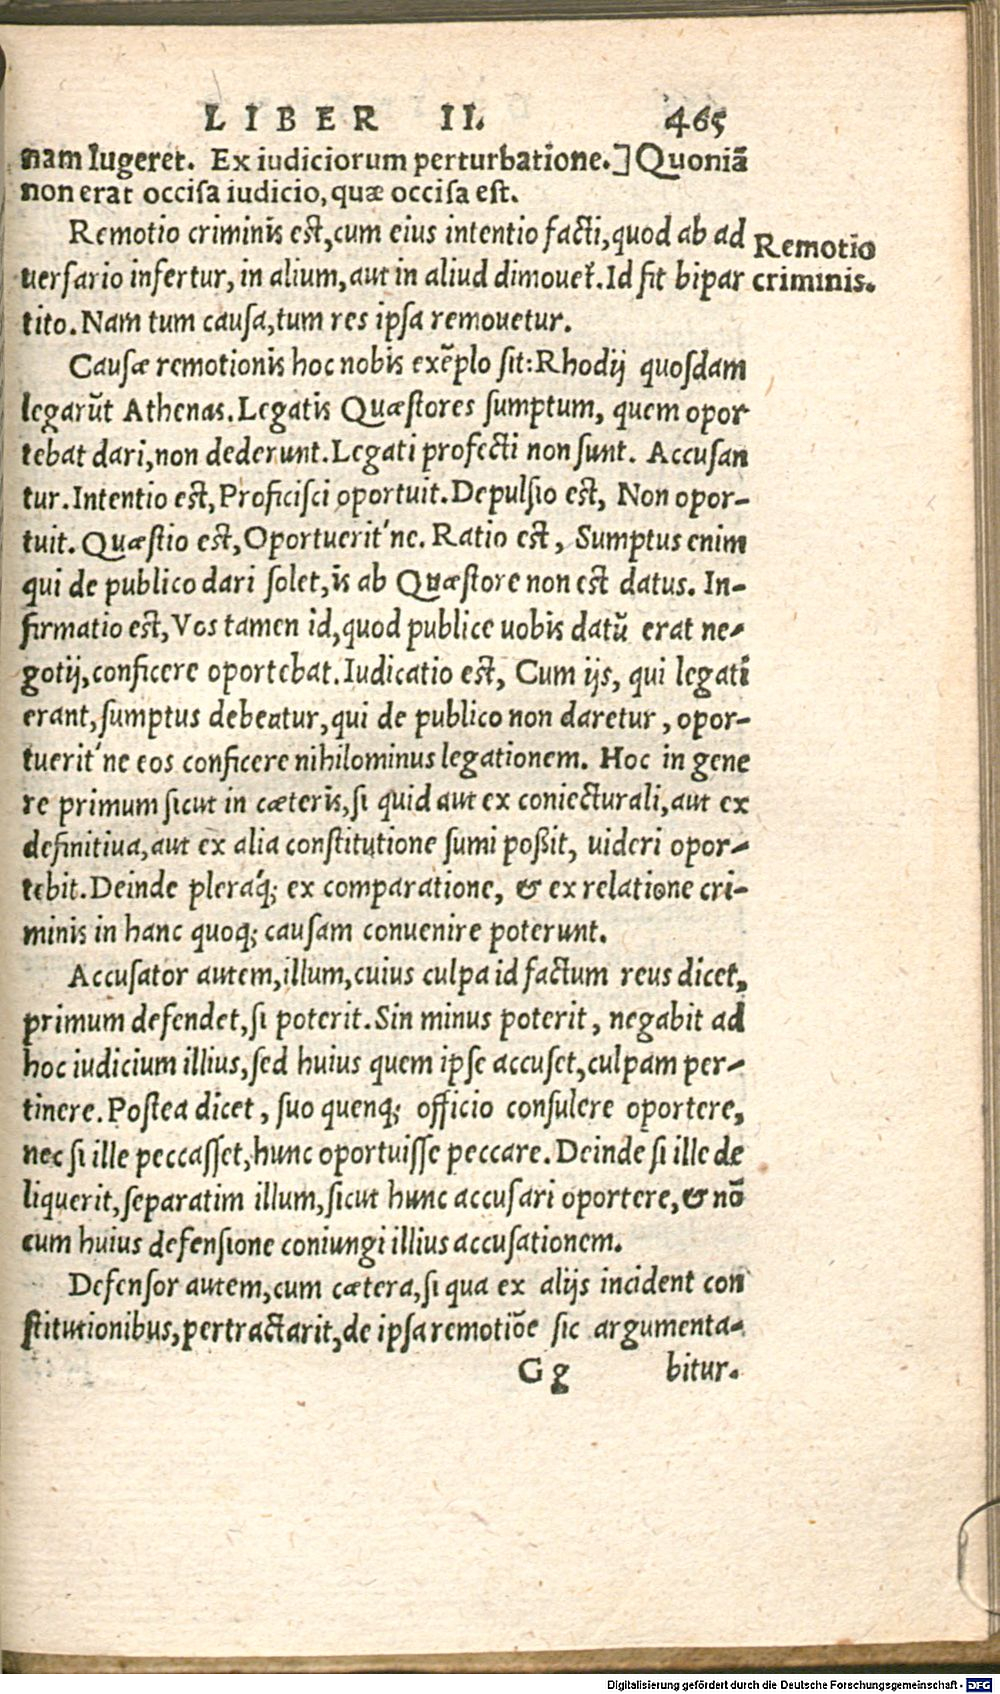 LIBER II. 465
nam lugeret. Ex iudiciorum perturbatione.] Quoniã
non erat occisa iudicio, quæ occisa est.
Remotio criminis est, cum eius intentio facti, quod ab ad
uersario infertur, in alium, aut in aliud dimouet̃. Id fit bipar
tito. Nam tum causa, tum res ipsa remouetur.
Remotio
criminis.
Causæ remotionis hoc nobis exẽplo sit: Rhodij quosdam
legarũt Athenas. Legatis Quæstores sumptum, quem opor
tebat dari, non dederunt. Legati profecti non sunt. Accusan
tur. Intentio est, Proficisci oportuit. Depulsio est, Non opor-
tuit. Quæstio est, Oportuerit'ne. Ratio est, Sumptus enim
qui de publico dari solet, is ab Quæstore non est datus. In-
firmatio est, Vos tamen id, quod publice uobis datũ erat ne-
gotij, conficere oportebat. Iudicatio est, Cum ijs, qui legati
erant, sumptus debeatur, qui de publico non daretur, opor-
tuerit'ne eos conficere nihilominus legationem. Hoc in gene
re primum sicut in cæteris, si quid aut ex coniecturali, aut ex
definitiua, aut ex alia constitutione sumi poßit, uideri opor-
tebit. Deinde pleraq́; ex comparatione, & ex relatione cri-
minis in hanc quoq; causam conuenire poterunt.
Accusator autem, illum, cuius culpa id factum reus dicet,
primum defendet, si poterit. Sin minus poterit, negabit ad
hoc iudicium illius, sed huius quem ipse accuset, culpam per-
tinere. Postea dicet, suo quenq; officio consulere oportere,
nec si ille peccasset, hunc oportuisse peccare. Deinde si ille de
liquerit, separatim illum, sicut hunc accusari oportere, & nõ
cum huius defensione coniungi illius accusationem.
Defensor autem, cum cætera, si qua ex alijs incident con
stitutionibus, pertractarit, de ipsa remotiõe sic argumenta-
Gg bitur.
Digitalisierung gefördert durch die Deutsche Forschungsgemeinschaft - DFG